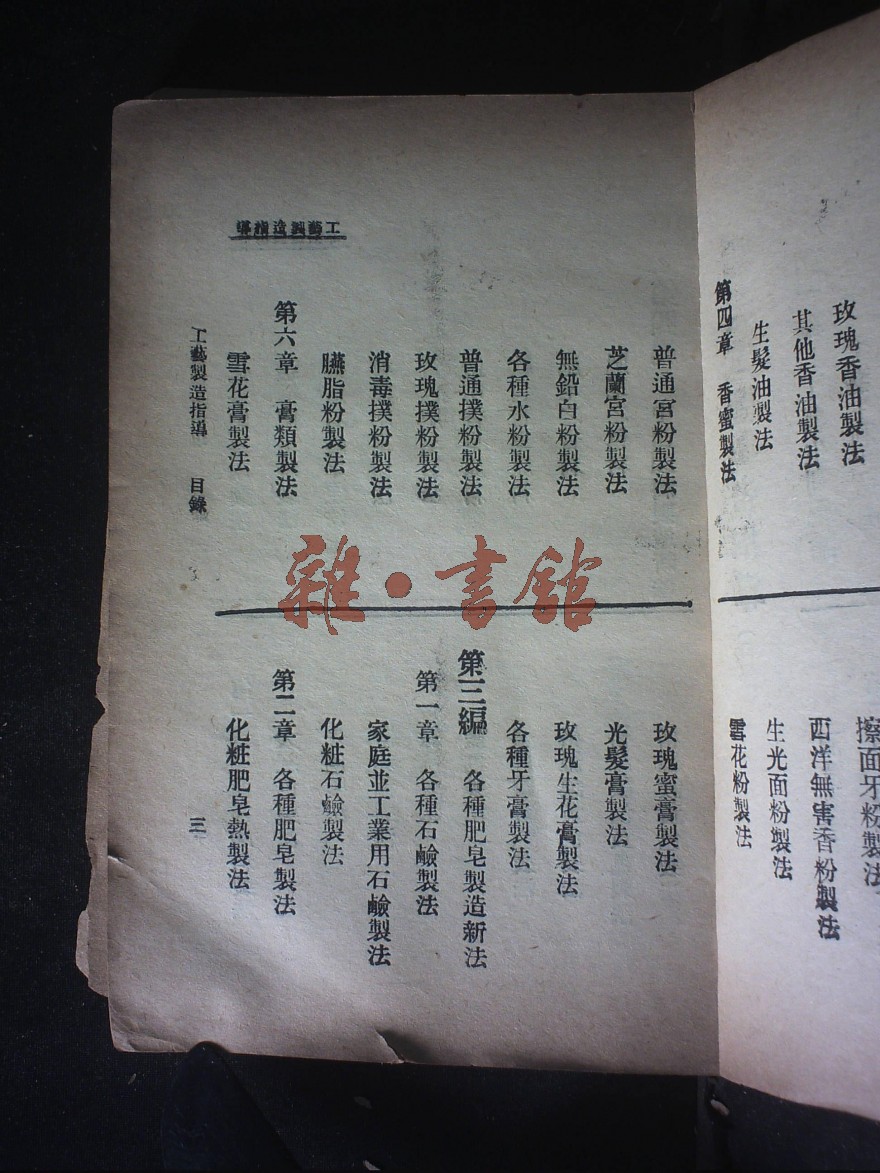 玫瑰香油製法
其他香油製法
生髮油製法
第四章 香蜜製法
擦面牙粉製法
西洋無害香粉製法
生光面粉製法
雪花粉製法
工藝製造指導
普通宮粉製法
芝蘭宮粉製法
無鉛白粉製法
各種水粉製法
普通撲粉製法
玫瑰撲粉製法
消毒撲粉製法
臙脂粉製法
第六章 膏類製法
雪花膏製法
玫瑰蜜膏製法
光髮膏製法
玫瑰生花膏製法
各種牙膏製法
第三編 各種肥皂製造新法
第一章 各種石鹼製法
家庭並工業用石鹼製法
化粧石鹼製法
第二章 各種肥皂製法
化粧肥皂熱製法
工藝製造指導 目錄 三
雜·書館